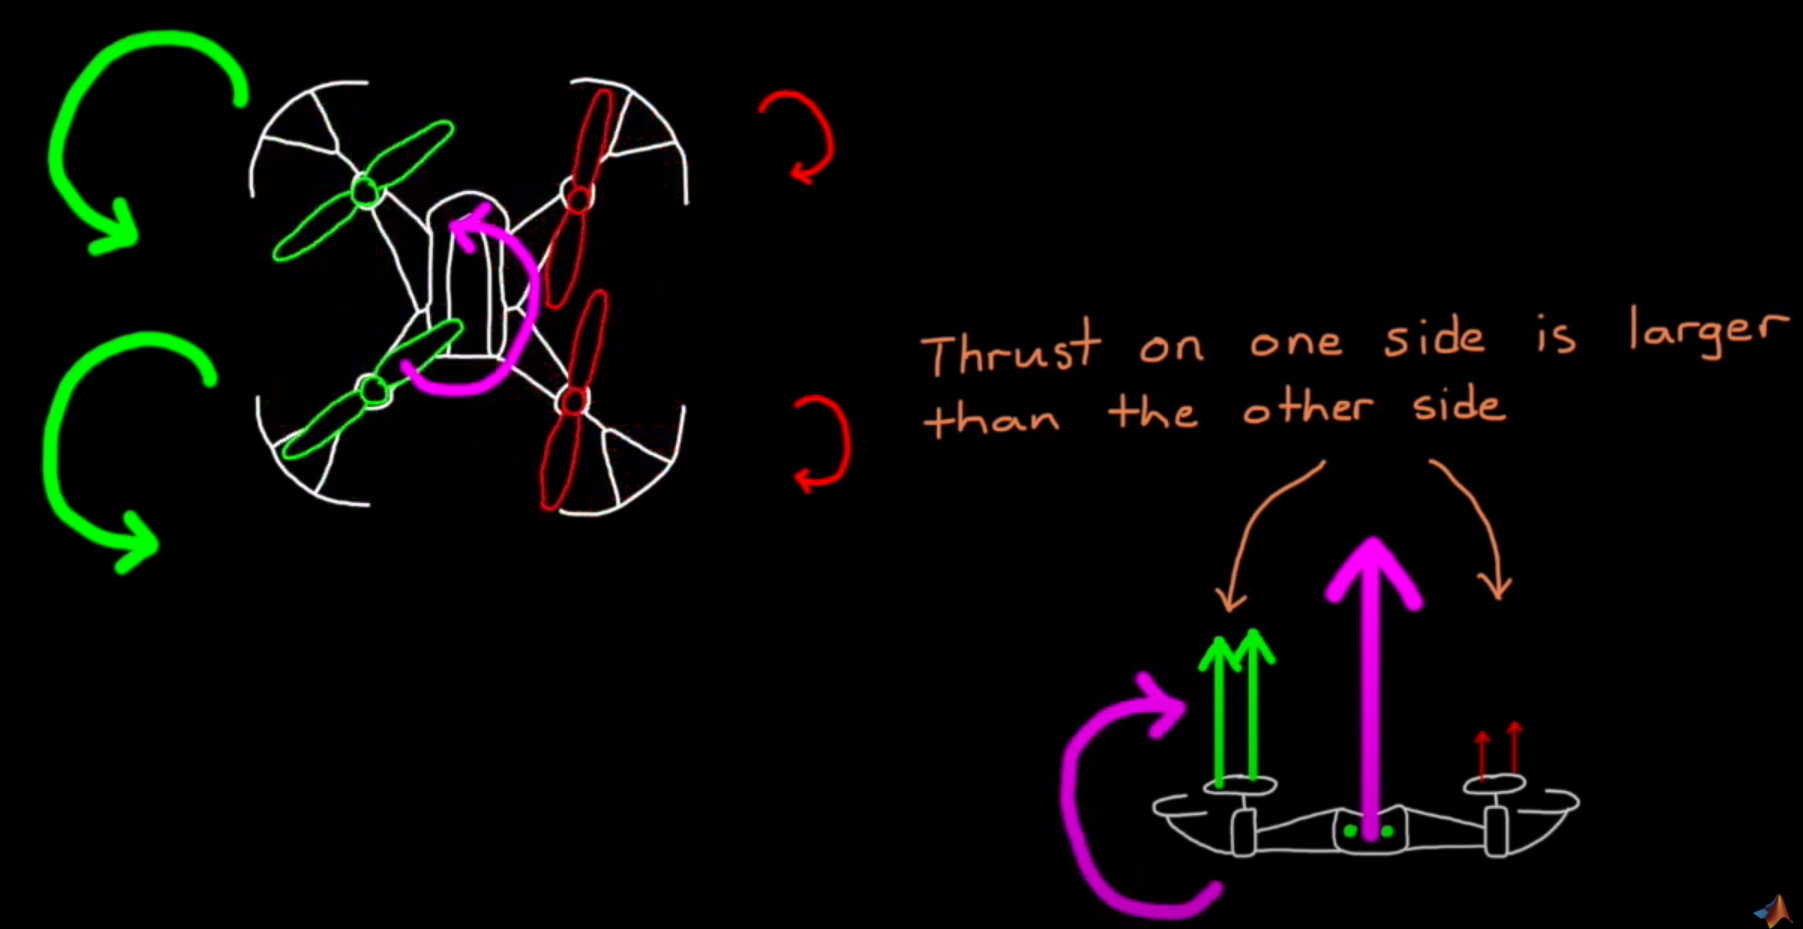 Thrust on one side is larger
than the other side